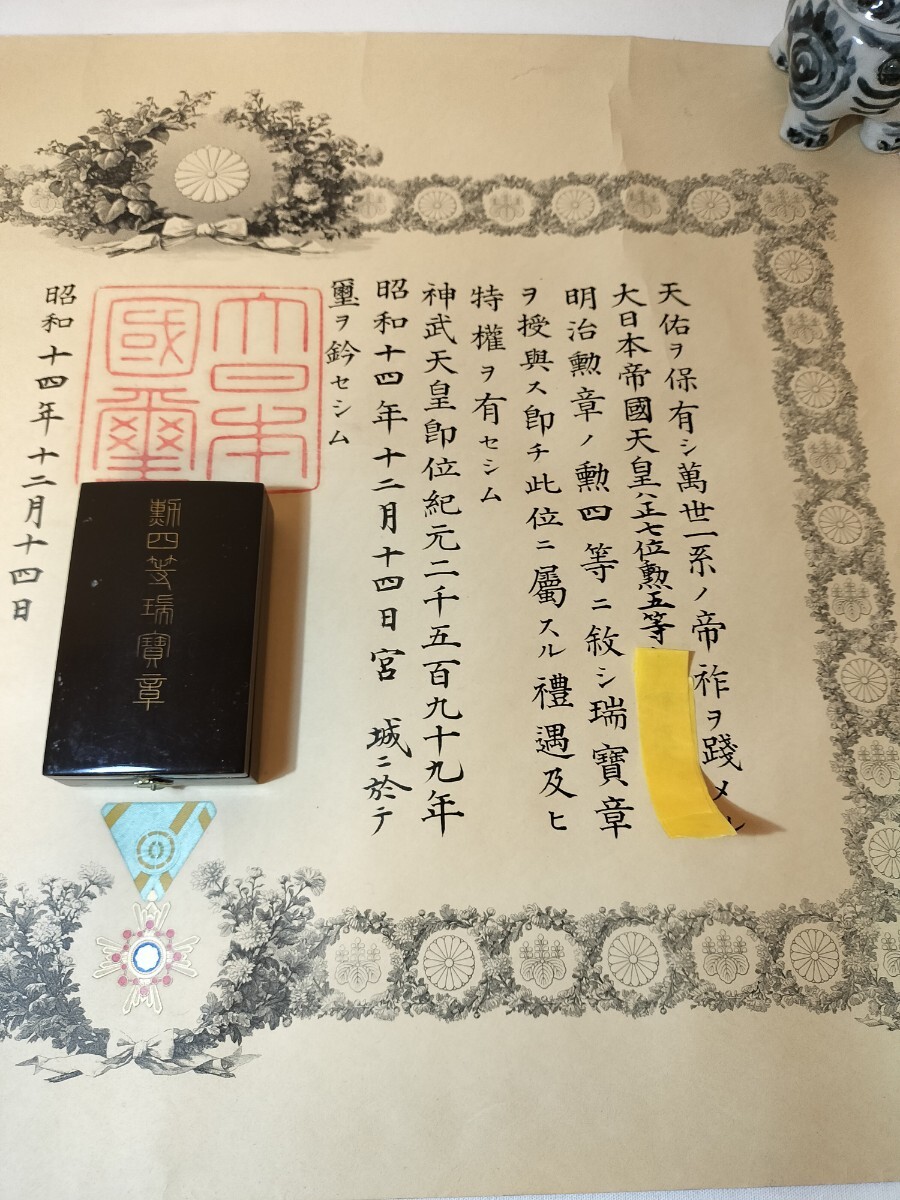 天佑ヲ保有シ萬世一系ノ帝祚ヲ踐メル
大日本帝國天皇ハ正七位勲五等
明治勲章ノ勲四等ニ敘シ瑞寶章
ヲ授與ス即チ此位ニ屬スル禮遇及ヒ
特權ヲ有セシム
神武天皇即位紀元二千五百九十九年
昭和十四年十二月十四日宮城ニ於テ
璽ヲ鈐セシム
大日本國璽
昭和十四年十二月十四日
勲四等瑞寶章